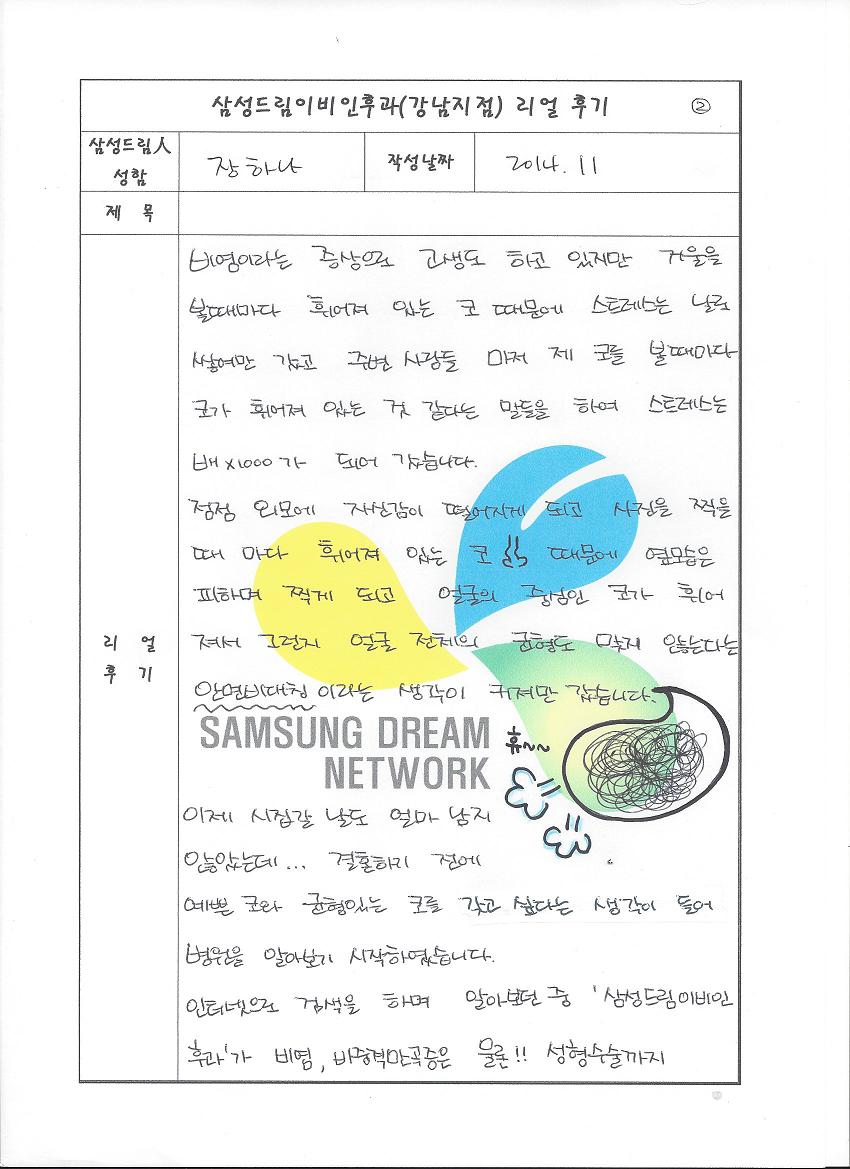 삼성드림이비인후과(강남지점) 리얼 후기 ②
삼성드림人
성함
장하나
작성날짜
2014. 11
제 목
비염이라는 증상으로 고생도 하고 있지만 거울을
볼때마다 휘어져 있는 코 때문에 스트레스는 날로
쌓여만 갔고 주변 사람들 마저 제 코를 볼때마다
코가 휘어져 있는 것 같다는 말들을 하여 스트레스는
배 x1000 가 되어 갔습니다.
점점 외모에 자신감이 떨어지게 되고 사진을 찍을
때 마다 휘어져 있는 코 때문에 옆모습은
피하며 찍게 되고 얼굴의 중심인 코가 휘어
져서 그런지 얼굴 전체의 균형도 맞지 않는다는
안면비대칭 이라는 생각이 커져만 갔습니다.
리 얼
후 기
SAMSUNG DREAM
NETWORK
휴~~
이제 시집갈 날도 얼마 남지
않았는데... 결혼하기 전에
예쁜 코와 균형있는 코를 갖고 싶다는 생각이 들어
병원을 알아보기 시작하였습니다.
인터넷으로 검색을 하며 알아보던 중 '삼성드림이비인
후과'가 비염, 비중격만곡증은 물론!! 성형수술까지